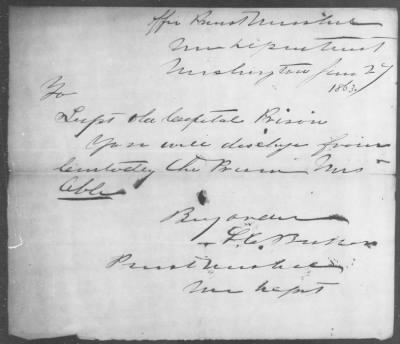 Offic Provost Marshal
War Department
Washington Jan 27
1863
To
Supt Old Capitol Prison
You will discharge from
Custody the Prisoner Mrs
Able
By order
L. C. Baker
Provost Marshal
War Dept